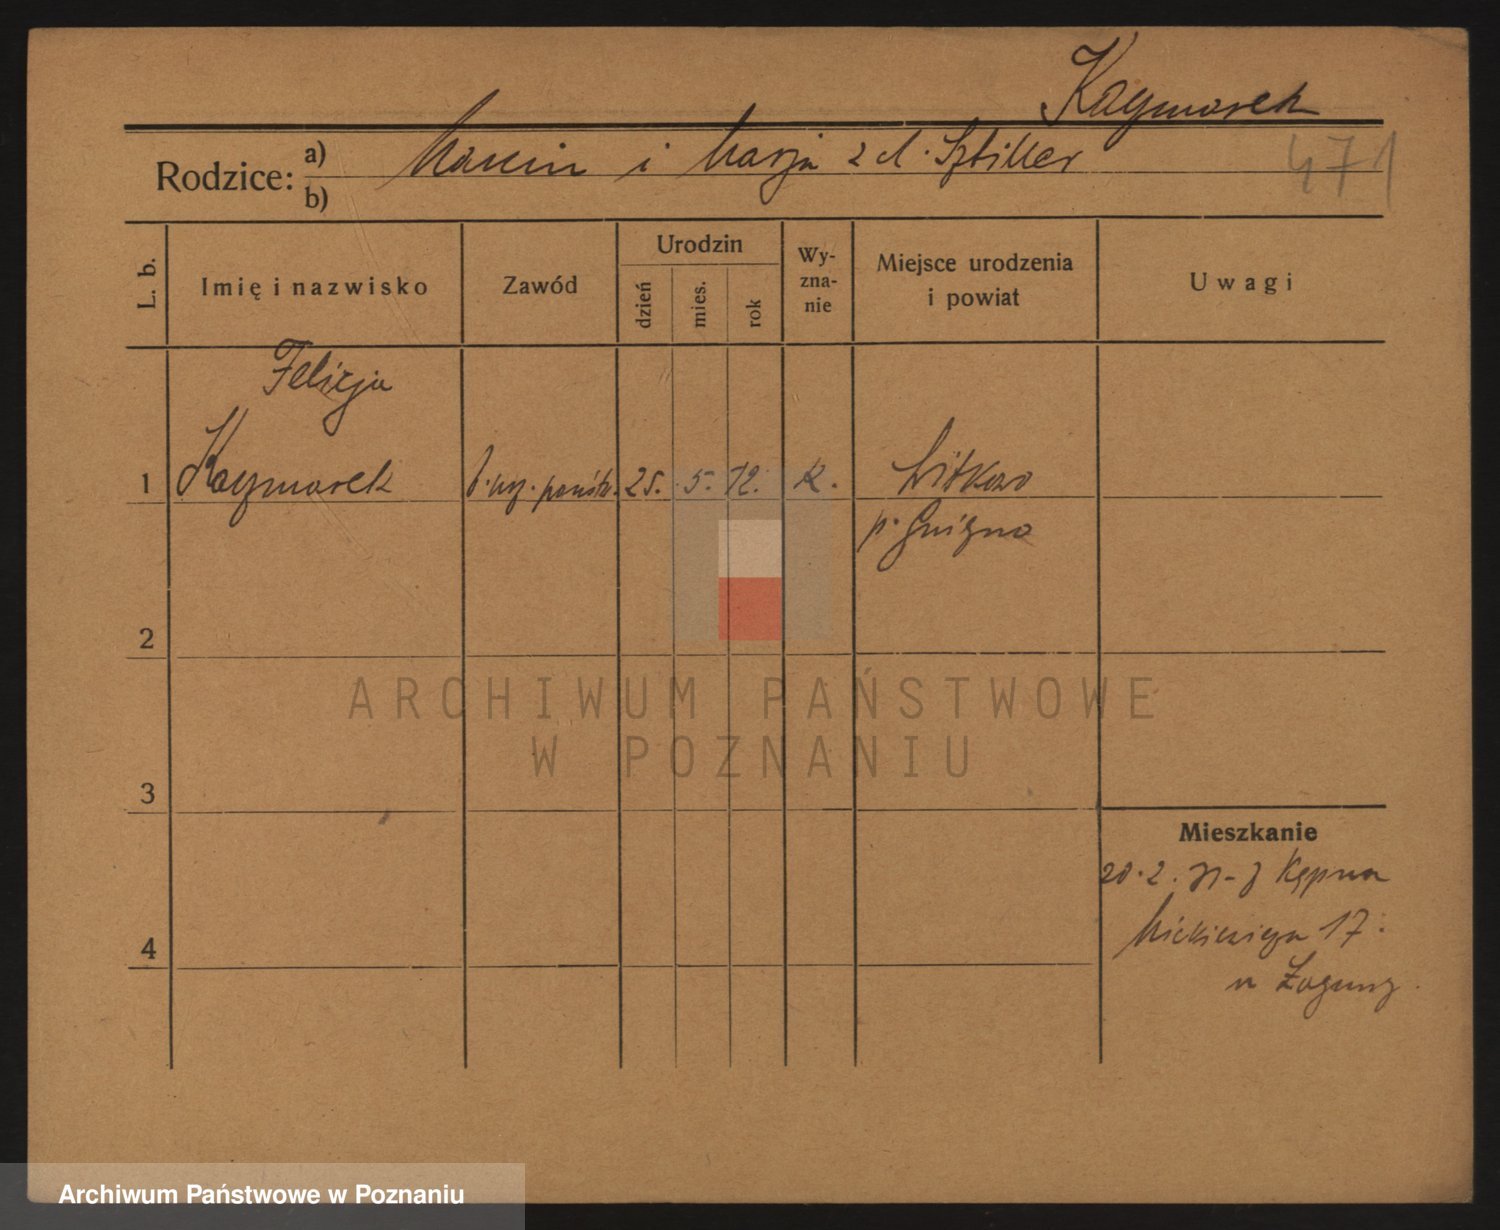 Kaczmarek
471
Rodzice: a) Marcin i Marja z d. Sztiller
b)
L. b.
Imię i nazwisko
Zawód
Urodzin
dzień
mies.
rok
Wy-
zna-
nie
Miejsce urodzenia
i powiat
Uwagi
Felicja
1 Kaczmarek 25. 5. 12. k. Witkowo
p. Gniezno
2
3
4
ARCHIWUM PAŃSTWOWE
W POZNANIU
Mieszkanie
20.2. z Kępna
Mickiewicza 17.
u
Archiwum Państwowe w Poznaniu